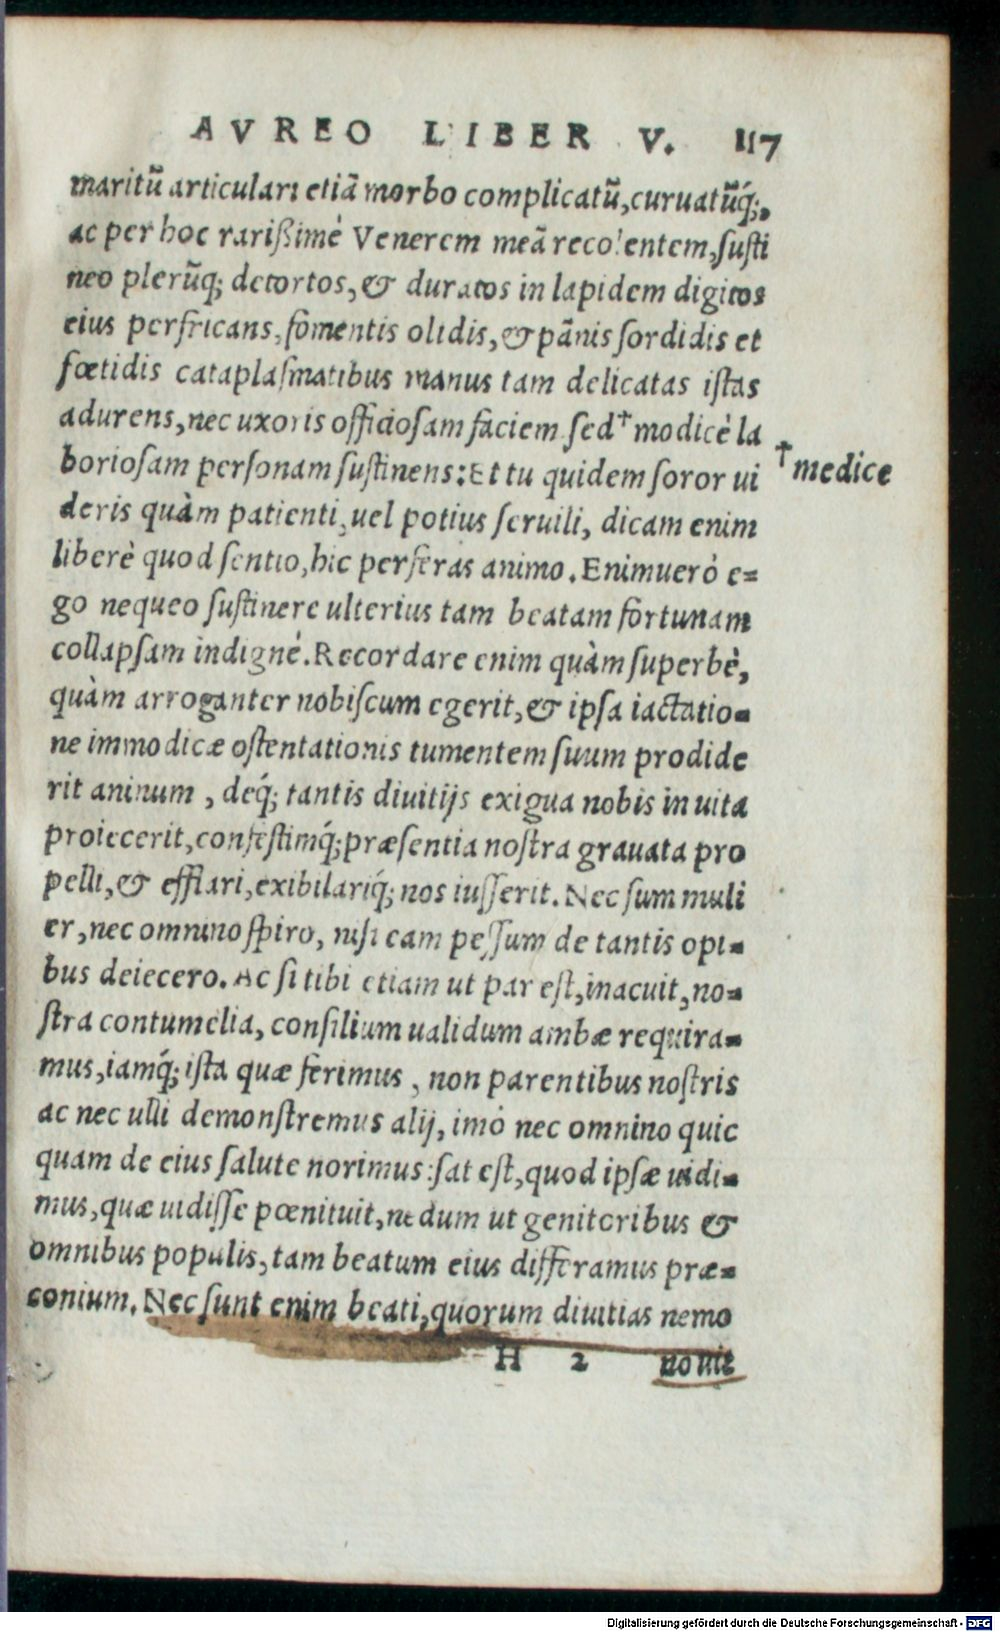 AVREO LIBER V. 117
maritũ articulari etiã morbo complicatũ, curuatũq́;,
ac per hoc rarißimè Venerem meã recolentem, susti
neo plerũq; detortos, & duratos in lapidem digitos
eius perfricans, fomentis olidis, & pãnis sordidis et
fœtidis cataplasmatibus manus tam delicatas istas
adurens, nec uxoris officiosam faciem sed † modicè la
† medice
boriosam personam sustinens: Et tu quidem soror ui
deris quàm patienti, uel potius seruili, dicam enim
liberè quod sentio, hic perferas animo. Enimueró e=
go nequeo sustinere ulterius tam beatam fortunam
collapsam indignè. Recordare enim quàm superbè,
quàm arroganter nobiscum egerit, & ipsa iactatio=
ne immodicæ ostentationis tumentem suum prodide
rit aninum, deq́; tantis diuitijs exigua nobis inuita
proiecerit, confestimq́; præsentia nostra grauata pro
pelli, & efflari, exibilariq́; nos iusserit. Nec sum muli
er, nec omnino spiro, nisi eam pessum de tantis opi=
bus deiecero. Ac si tibi etiam ut par est, inacuit, no=
stra contumelia, consilium ualidum ambæ requira=
mus, iamq́; ista quæ ferimus, non parentibus nostris
ac nec ulli demonstremus alij, imò nec omnino quic
quam de eius salute norimus: sat est, quod ipsæ uidi=
mus, quæ uidisse pœnituit, nedum ut genitoribus &
omnibus populis, tam beatum eius differamus præ=
conium. Nec sunt enim beati, quorum diuitias nemo
H 2 nouit
Digitalisierung gefördert durch die Deutsche Forschungsgemeinschaft - DFG